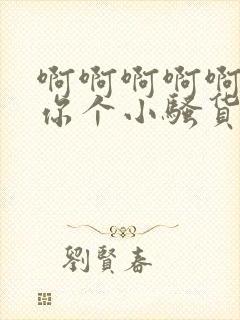 啊啊啊啊啊
你个小骚货
劉賢春